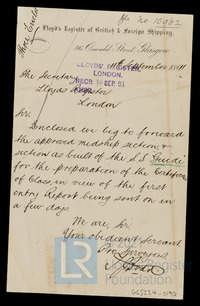 No 10962
Lloyd's Register of British & Foreign Shipping,
36 Oswald Street, Glasgow
11th September 1891
LLOYD'S REGISTER,
LONDON.
RECD 12 SEP. 91
The Secretary
Lloyds Register
London
Sir,
Enclosed we beg to forward
the approved midship section &
section as built of the S.S Guide
for the preparation of the Certificate
of Class, in view of the first
entry Report being sent on in
a few days
We are, Sir,
Your obedient Servant
Pro Surveyors
Lloyd's
Register
Foundation
GL5224-0190